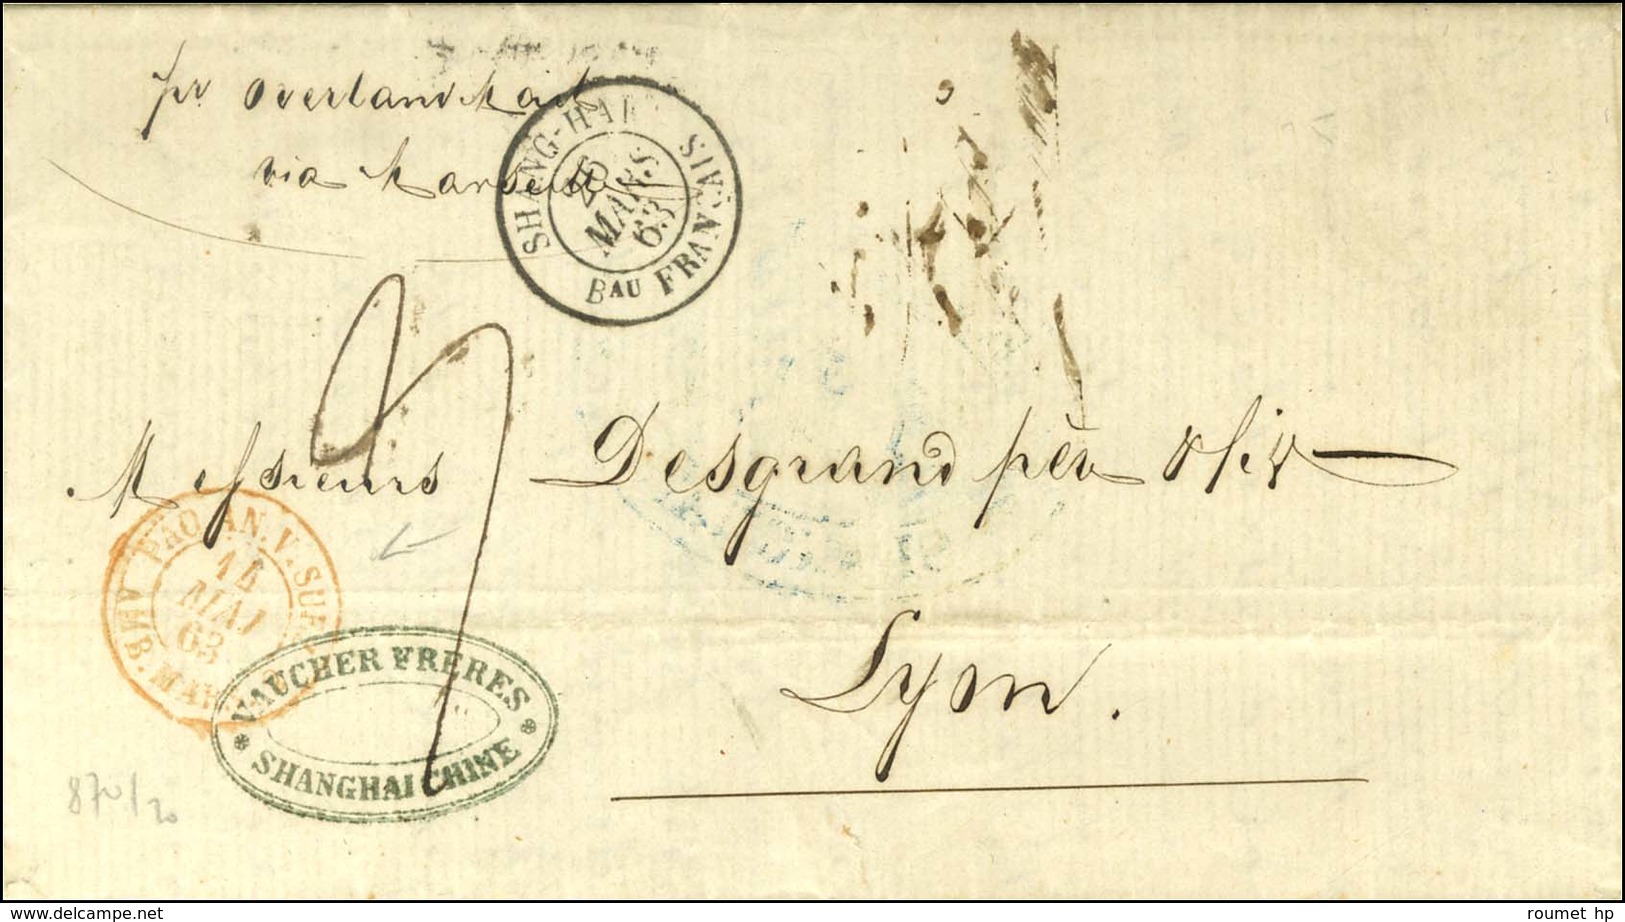 pr Overland Mail
via Marseille
SHANG-HAI BAU FRANÇAIS
26 MARS 63
Messieurs Desgrand père & fils
PAQ. AN. V. SUEZ
14 MAI 63
AMB. MAR
VAUCHER FRERES
SHANGHAI CHINE
Lyon.
roumet hp